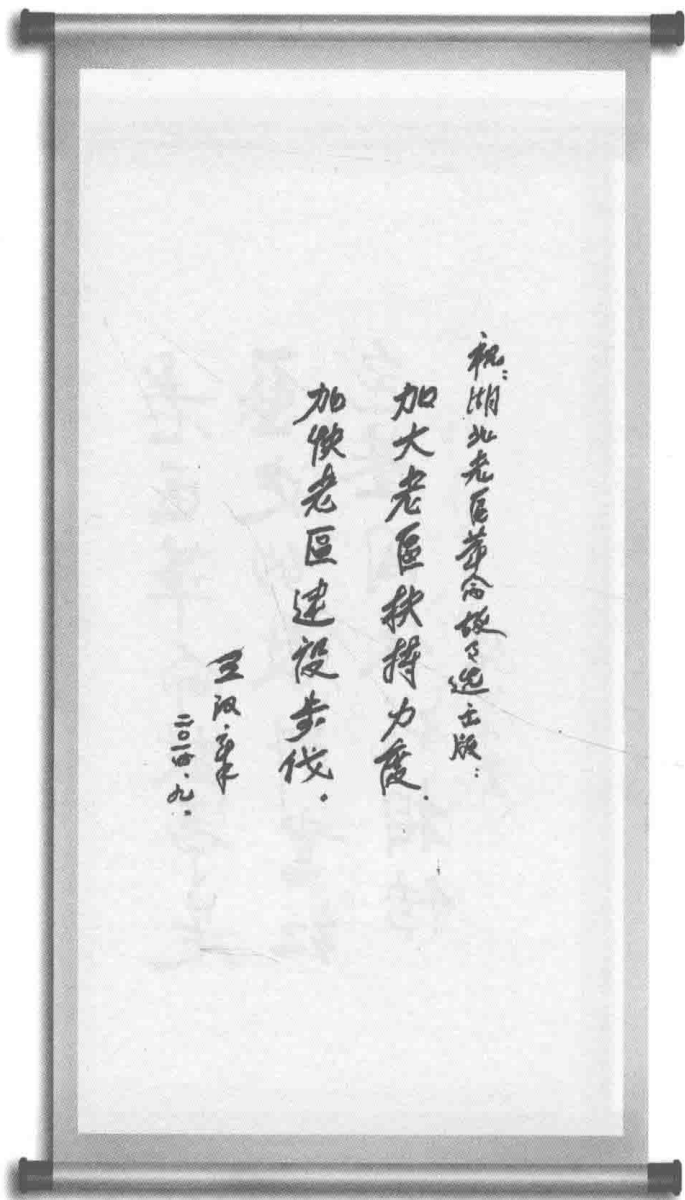 祝:湖北老区革命故事选出版:
加大老區扶持力度.
加快老區建设步伐.
王汉章
二〇一四.九.